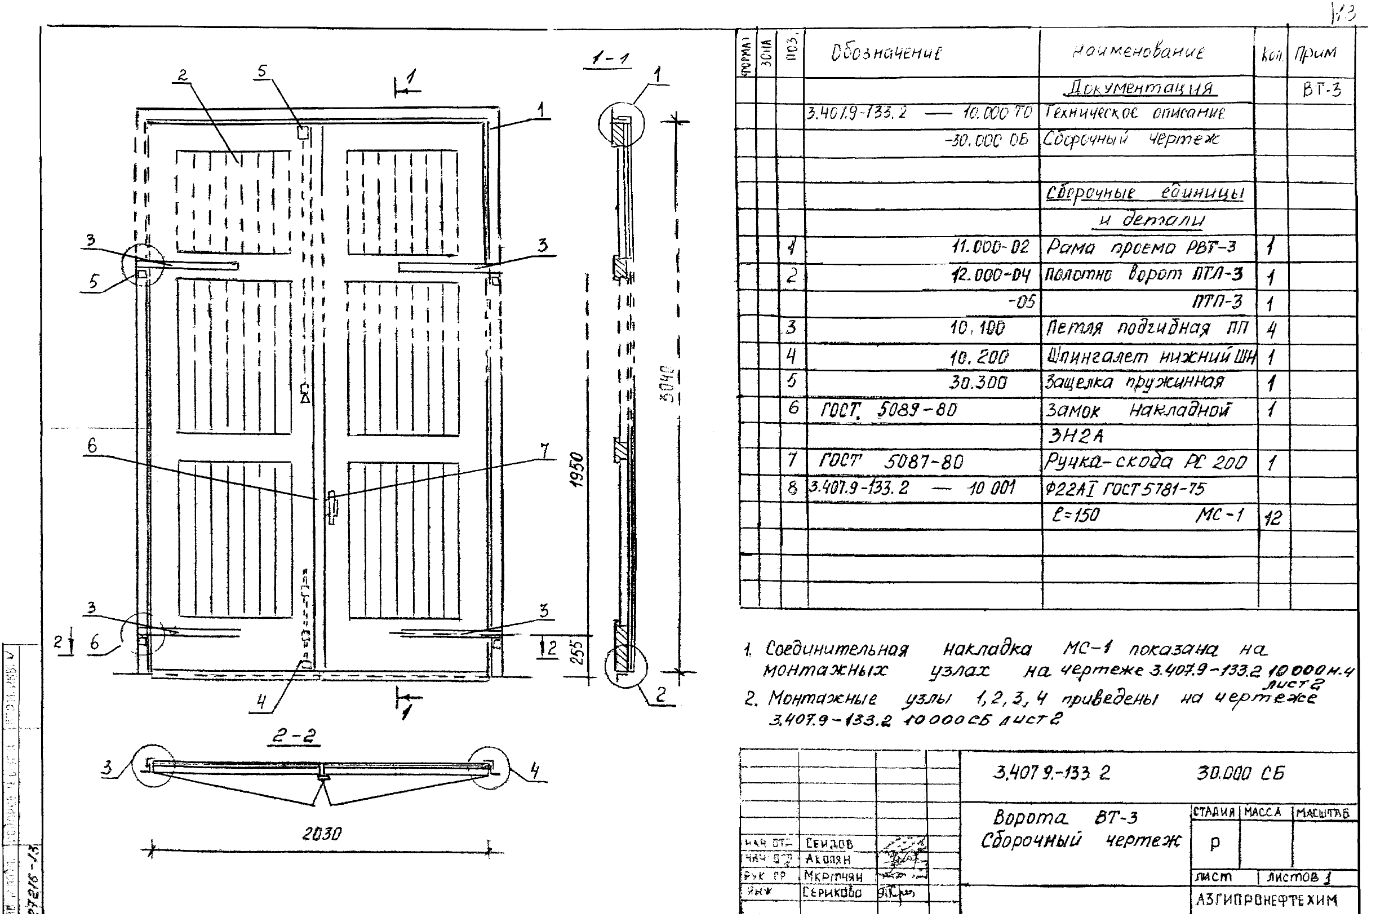 1-1
2
5
1
1
1
3
5
3
6
7
3
3
6
2
2
4
1
2
3040
1950
255
2-2
3
4
2030
ФОРМАТ ЗОНА ПОЗ. Обозначение Наименование Кол Прим
Документация ВТ-3
3.407.9-133.2 — 10.000 ТО Техническое описание
-30.000 ОБ Сборочный чертеж
Сборочные единицы
и детали
1 11.000-02 Рама проема РВТ-3 1
2 12.000-04 Полотно ворот ПТЛ-3 1
-05 ПТП-3 1
3 10.100 Петля подгибная ПП 4
4 10.200 Шпингалет нижний ШН 1
5 30.300 Защелка пружинная 1
6 ГОСТ 5089-80 Замок накладной 1
ЗН2А
7 ГОСТ 5087-80 Ручка-скоба РС 200 1
8 3.407.9-133.2 — 10 001 Ф22АI ГОСТ 5781-75
ℓ=150 МС-1 12
1. Соединительная накладка МС-1 показана на
монтажных узлах на чертеже 3.407.9-133.2 10 000 м.ч
лист 2
2. Монтажные узлы 1, 2, 3, 4 приведены на чертеже
3.407.9-133.2 10 000 СБ лист 2
3.407 9.-133 2 30.000 СБ
Ворота ВТ-3
Сборочный чертеж
СТАДИЯ МАССА МАСШТАБ
Р
ЛИСТ ЛИСТОВ 1
АЗГИПРОНЕФТЕХИМ
НАЧ ОТД СЕИДОВ
АКОПЯН
РУК ГР МКРТЧЯН
ИНЖ СЕРИКОВА